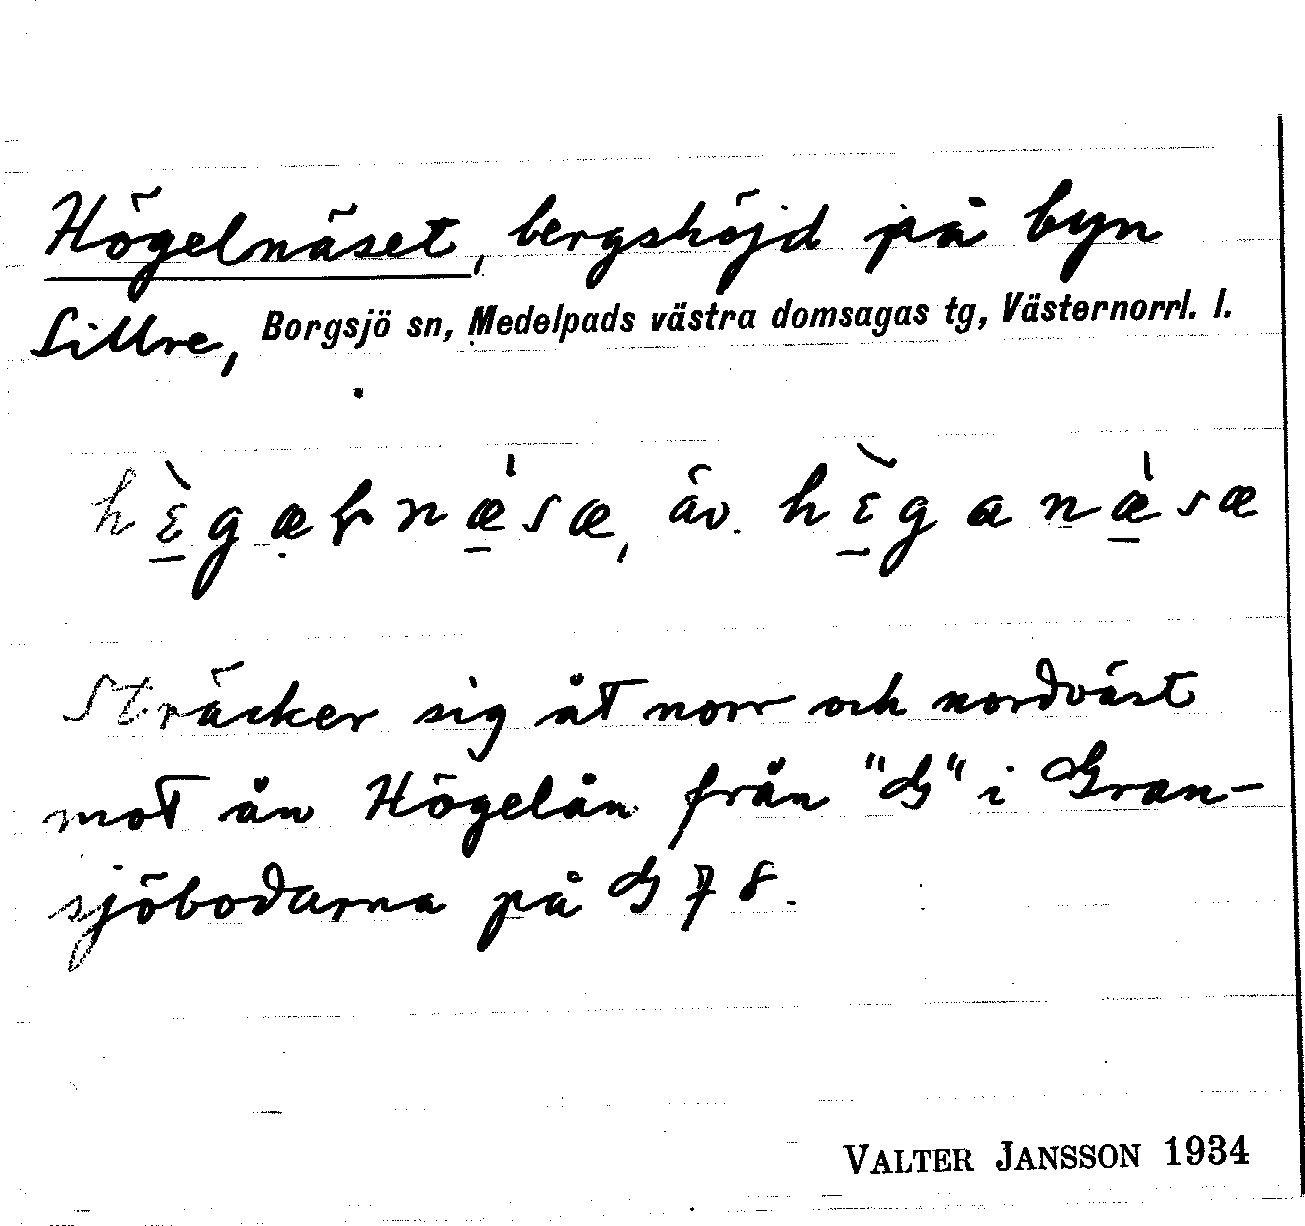 Högelnäset, bergshöjd på byn
Sillre, Borgsjö sn, Medelpads västra domsagas tg, Västernorrl. l.
äv.
Sträcker sig åt norr och nordväst
mot ån Högelån från "G" i Gran-
sjöbodarna på G 78.
VALTER JANSSON 1934